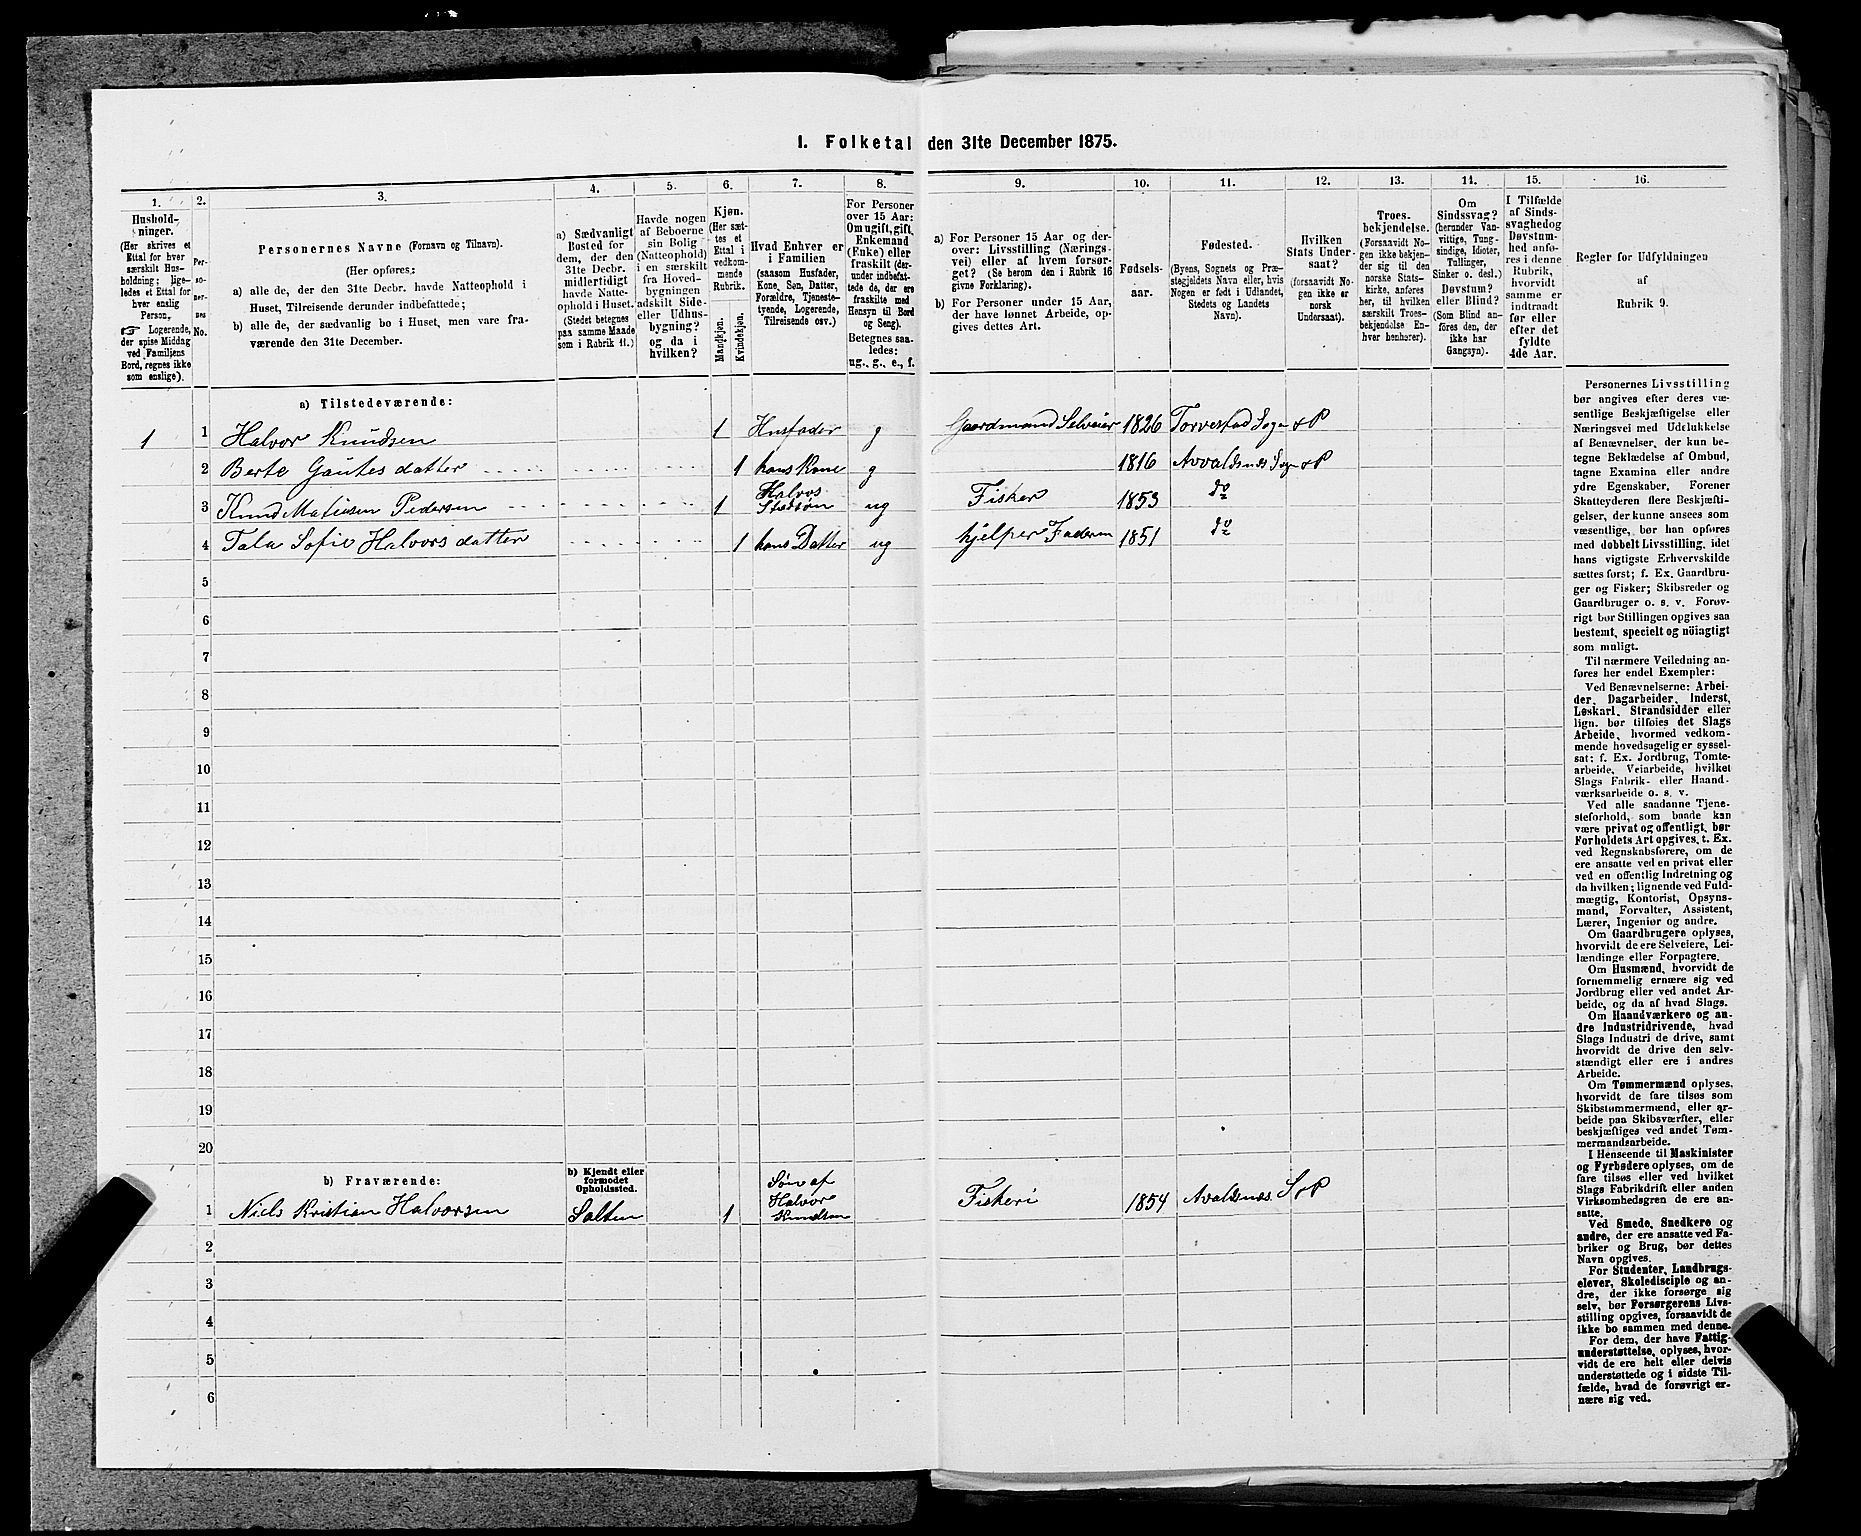 1. Folketal den 31te December 1875.
1.
2.
3.
4.
5.
6.
7.
8.
9.
10.
11.
12.
13.
14.
15.
16.
Hushold-
ninger.
(Her skrives et
Ettal for hver
særskilt Hus-
holdning; lige-
ledes et Ettal for
hver enslig
Person.
☞ Logerende,
der spise Middag
ved Familiens
Bord, regnes ikke
som enslige).
Per-
so-
ner-
nes
No.
Personernes Navne (Fornavn og Tilnavn).
(Her opføres:
a) alle de, der den 31te Decbr. havde Natteophold i
Huset, Tilreisende derunder indbefattede;
b) alle de, der sædvanlig bo i Huset, men vare fra-
værende den 31te December.
a) Sædvanligt
Bosted for
dem, der den
31te Decbr.
midlertidigt
havde Natte-
ophold i Huset.
(Stedet betegnes
paa samme Maade
som i Rubrik 11.)
Havde nogen
af Beboerne
sin Bolig
(Natteophold)
i en særskilt
fra Hoved-
bygningen
adskilt Side-
eller Udhus-
bygning?
og da i
hvilken?
Kjøn.
(Her sæt-
tes et
Ettal i
vedkom-
mende
Rubrik.
Mandkjøn.
Kvindekjøn.
Hvad Enhver er
i Familien
(saasom Husfader,
Kone, Søn, Datter,
Forældre, Tjeneste-
tyende, Logerende,
Tilreisende osv.)
For Personer
over 15 Aar:
Om ugift, gift,
Enkemand
(Enke) eller
fraskilt (der-
under indbefat-
tede de, der ere
fraskilte med
Hensyn til Bord
og Seng).
Betegnes saa-
ledes:
ug., g., e., f.
a) For Personer 15 Aar og der-
over: Livsstilling (Nærings-
vei) eller af hvem forsør-
get? (Se herom den i Rubrik 16
givne Forklaring).
b) For Personer under 15 Aar,
der have lønnet Arbeide, op-
gives dettes Art.
Fødsels-
aar.
Fødested.
(Byens, Sognets og Præ-
stegjeldets Navn eller, hvis
Nogen er født i Udlandet,
Stedets og Landets
Navn).
Hvilken
Stats Under-
saat?
(forsaavidt No-
gen ikke er
norsk
Undersaat).
Troes-
bekjendelse.
(Forsaavidt No-
gen ikke bekjen-
der sig til den
norske Stats-
kirke, anføres
her, til hvilken
særskilt Troes-
bekjendelse En-
hver henhører).
Om
Sindssvag?
(herunder Van-
vittige, Tung-
sindige, Idioter,
Tullinger,
Sinker o. desl.)
Døvstum?
eller Blind?
(Som Blind an-
føres den, der
ikke har
Gangsyn).
I Tilfælde
af Sinds-
svaghed og
Døvstum-
hed anfø-
res i denne
Rubrik,
hvorvidt
samme er
indtraadt
før eller
efter det
fyldte
4de Aar.
Regler for Udfyldningen
af
Rubrik 9.
a) Tilstedeværende:
1 1 Halvor Knudsen 1 Husfader g Gaardmand Selveier 1826 Torvestad Sogn & P
2 Berte Gautesdatter 1 hans Kone g 1816 Avaldsnes Sogn & P
3 Knud Matiesen Pedersen 1 Halvos Stedsøn ug Fisker 1853 do
4 Tala Sofie Halvorsdatter 1 hans Datter ug hjelper Faderen 1851 do
5
6
7
8
9
10
11
12
13
14
15
16
17
18
19
20
b) Fraværende:
b) Kjendt eller
formodet
Opholdssted.
1 Niels Kristian Halvorsen Salten 1 Søn af Halvor Knudsen Fiskeri 1854 Avaldsnes S & P
2
3
4
5
6
Personernes Livsstilling
bør angives efter deres væ-
sentlige Beskjæftigelse eller
Næringsvei med Udelukkelse
af Benævnelser, der kun be-
tegne Beklædelse af Ombud,
tagne Examina eller andre
ydre Egenskaber. Forener
Skatteyderen flere Beskjæfti-
gelser, der kunne ansees som
væsentlige, bør han opføres
med dobbelt Livsstilling, idet
hans vigtigste Erhvervskilde
sættes først; f. Ex. Gaardbru-
ger og Fisker; Skibsreder og
Gaardbruger o. s. v. Forøv-
rigt bør Stillingen opgives saa
bestemt, specielt og nöiagtigt
som muligt.
Til nærmere Veiledning an-
føres her endel Exempler:
Ved Benævnelserne: Arbei-
der, Dagarbeider, Inderst,
Løskarl, Strandsidder eller
lign. bør tilføies det Slags
Arbeide, hvormed vedkom-
mende hovedsagelig er syssel-
sat; f. Ex. Jordbrug, Tomte-
arbeide, Veiarbeide, hvilket
Slags Fabrik- eller Haand-
værksarbeide o. s. v.
Ved alle saadanne Tjene-
steforhold, som baade kan
være privat og offentligt, bør
Forholdets Art opgives, t. Ex.
ved Regnskabsførere, om de
ere ansatte ved en privat eller
ved en offentlig Indretning og
da hvilken; lignende ved Fuld-
mægtig, Kontorist, Opsyns-
mand, Forvalter, Assistent,
Lærer, Ingeniør og andre.
Om Gaardbrugere oplyses,
hvorvidt de ere Selveiere, Lei-
lændinge eller Forpagtere.
Om Husmænd, hvorvidt de
fornemmelig ernære sig ved
Jordbrug eller ved andet Ar-
beide, og da af hvad Slags.
Om Haandværkere og an-
dre Industridrivende, hvad
Slags Industri de drive, samt
hvorvidt de drive den selv-
stændigt eller ere i andres
Arbeide.
Om Tømmermænd oplyses,
hvorvidt de fare tilsøs som
Skibstømmermænd, eller ar-
beide paa Skibsværfter, eller
beskjæftiges ved andet Tøm-
mermandsarbeide.
I Henseende til Maskinister
og Fyrbødere oplyses, om de
fare tilsøs eller ved hvilket
Slags Fabrikdrift eller anden
Virksomhedsgren de ere an-
satte.
Ved Smede, Snedkere og
andre, der ere ansatte ved Fa-
briker og Brug, bør dettes
Navn opgives.
For Studenter, Landbrugs-
elever, Skoledisciple og an-
dre, der ikke forsørge sig
selv, bør Forsørgerens Livs-
stilling opgives, forsaavidt de
ikke bo sammen med denne.
For dem, der have Fattig-
understøttelse, oplyses, hvor-
vidt de ere helt eller delvis
understøttede og i sidste Til-
fælde, hvad de forøvrigt er-
nære sig ved.